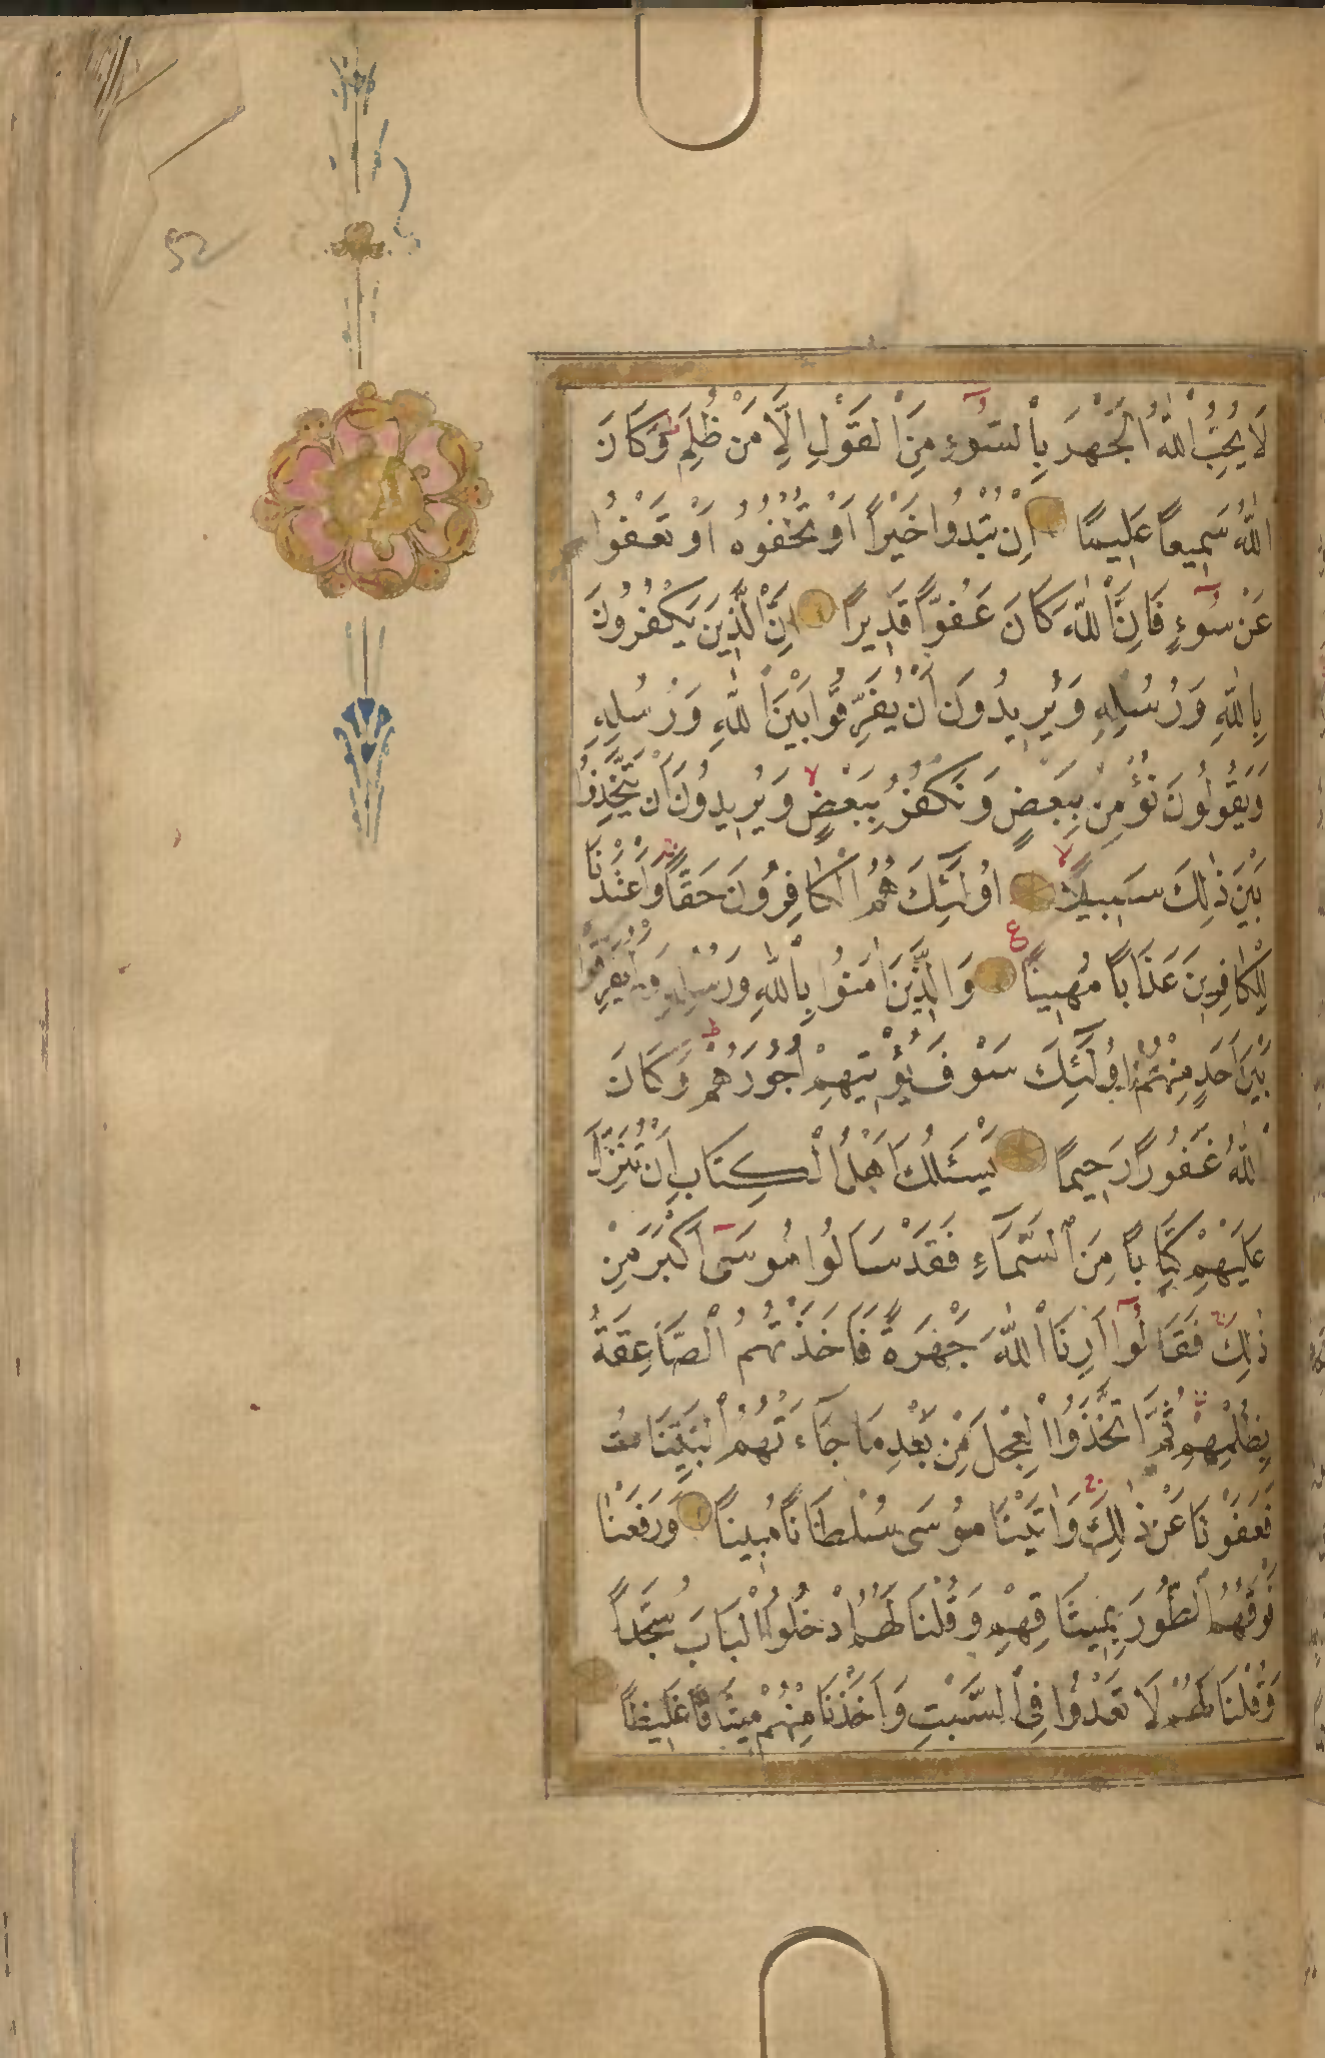 لَا يُحِبُّ اللّٰهُ الْجَهْرَ بِالسُّوءِ مِنَ الْقَوْلِ اِلَّا مَنْ ظُلِمَ وَكَانَ
اللّٰهُ سَمِيعًا عَلِيمًا اِنْ تُبْدُوا خَيْرًا اَوْ تُخْفُوهُ اَوْ تَعْفُوا
عَنْ سُوءٍ فَاِنَّ اللّٰهَ كَانَ عَفُوًّا قَدِيرًا اِنَّ الَّذِينَ يَكْفُرُونَ
بِاللّٰهِ وَرُسُلِهِ وَيُرِيدُونَ اَنْ يُفَرِّقُوا بَيْنَ اللّٰهِ وَرُسُلِهِ
وَيَقُولُونَ نُؤْمِنُ بِبَعْضٍ وَنَكْفُرُ بِبَعْضٍ وَيُرِيدُونَ اَنْ يَتَّخِذُوا
بَيْنَ ذٰلِكَ سَبِيلًا اُولٰٓئِكَ هُمُ الْكَافِرُونَ حَقًّا وَاَعْتَدْنَا
لِلْكَافِرِينَ عَذَابًا مُهِينًا ع وَالَّذِينَ اٰمَنُوا بِاللّٰهِ وَرُسُلِهِ وَلَمْ يُفَرِّقُوا
بَيْنَ اَحَدٍ مِنْهُمْ اُولٰٓئِكَ سَوْفَ يُؤْتِيهِمْ اُجُورَهُمْ وَكَانَ
اللّٰهُ غَفُورًا رَحِيمًا يَسْئَلُكَ اَهْلُ الْكِتَابِ اَنْ تُنَزِّلَ
عَلَيْهِمْ كِتَابًا مِنَ السَّمَاءِ فَقَدْ سَاَلُوا مُوسٰٓى اَكْبَرَ مِنْ
ذٰلِكَ فَقَالُوا اَرِنَا اللّٰهَ جَهْرَةً فَاَخَذَتْهُمُ الصَّاعِقَةُ
بِظُلْمِهِمْ ثُمَّ اتَّخَذُوا الْعِجْلَ مِنْ بَعْدِ مَا جَاءَتْهُمُ الْبَيِّنَاتُ
فَعَفَوْنَا عَنْ ذٰلِكَ وَاٰتَيْنَا مُوسَى سُلْطَانًا مُبِينًا وَرَفَعْنَا
فَوْقَهُمُ الطُّورَ بِمِيثَاقِهِمْ وَقُلْنَا لَهُمُ ادْخُلُوا الْبَابَ سُجَّدًا
وَقُلْنَا لَهُمْ لَا تَعْدُوا فِي السَّبْتِ وَاَخَذْنَا مِنْهُمْ مِيثَاقًا غَلِيظًا